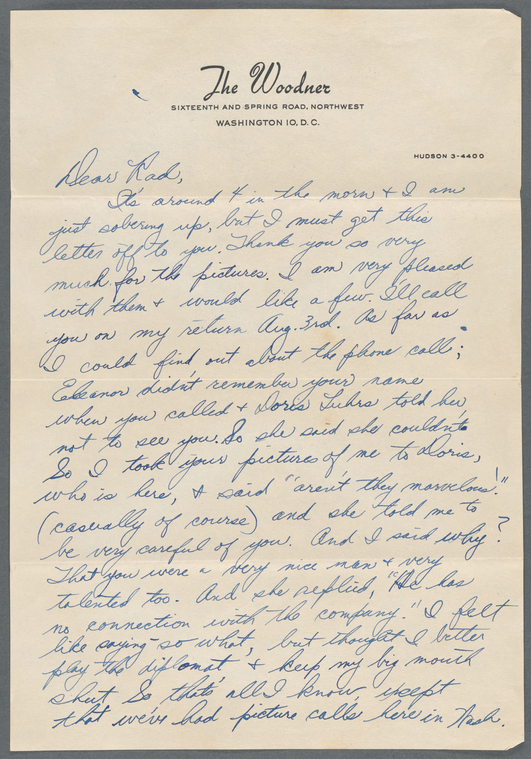 The Woodner
SIXTEENTH AND SPRING ROAD, NORTHWEST
WASHINGTON 10, D.C.
HUDSON 3-4400
Dear Rad,
It's around 4 in the morn & I am
just sobering up, but I must get this
letter off to you. Thank you so very
much for the pictures. I am very pleased
with them & would like a few. I'll call
you on my return Aug. 3rd. As far as
I could find out about the phone call;
Eleanor didn't remember your name
when you called & Doris Luhrs told her
not to see you. So she said she couldn't.
So I took your pictures of me to Doris,
who is here, & said "aren't they marvelous!"
(casually of course) and she told me to
be very careful of you. And I said why?
That you were a very nice man & very
talented too. And she replied, "He has
no connection with the company." I felt
like saying-so what, but thought I better
play the diplomat, & keep my big mouth
shut. So that's all I know, exept
that we've had picture calls here in Wash.